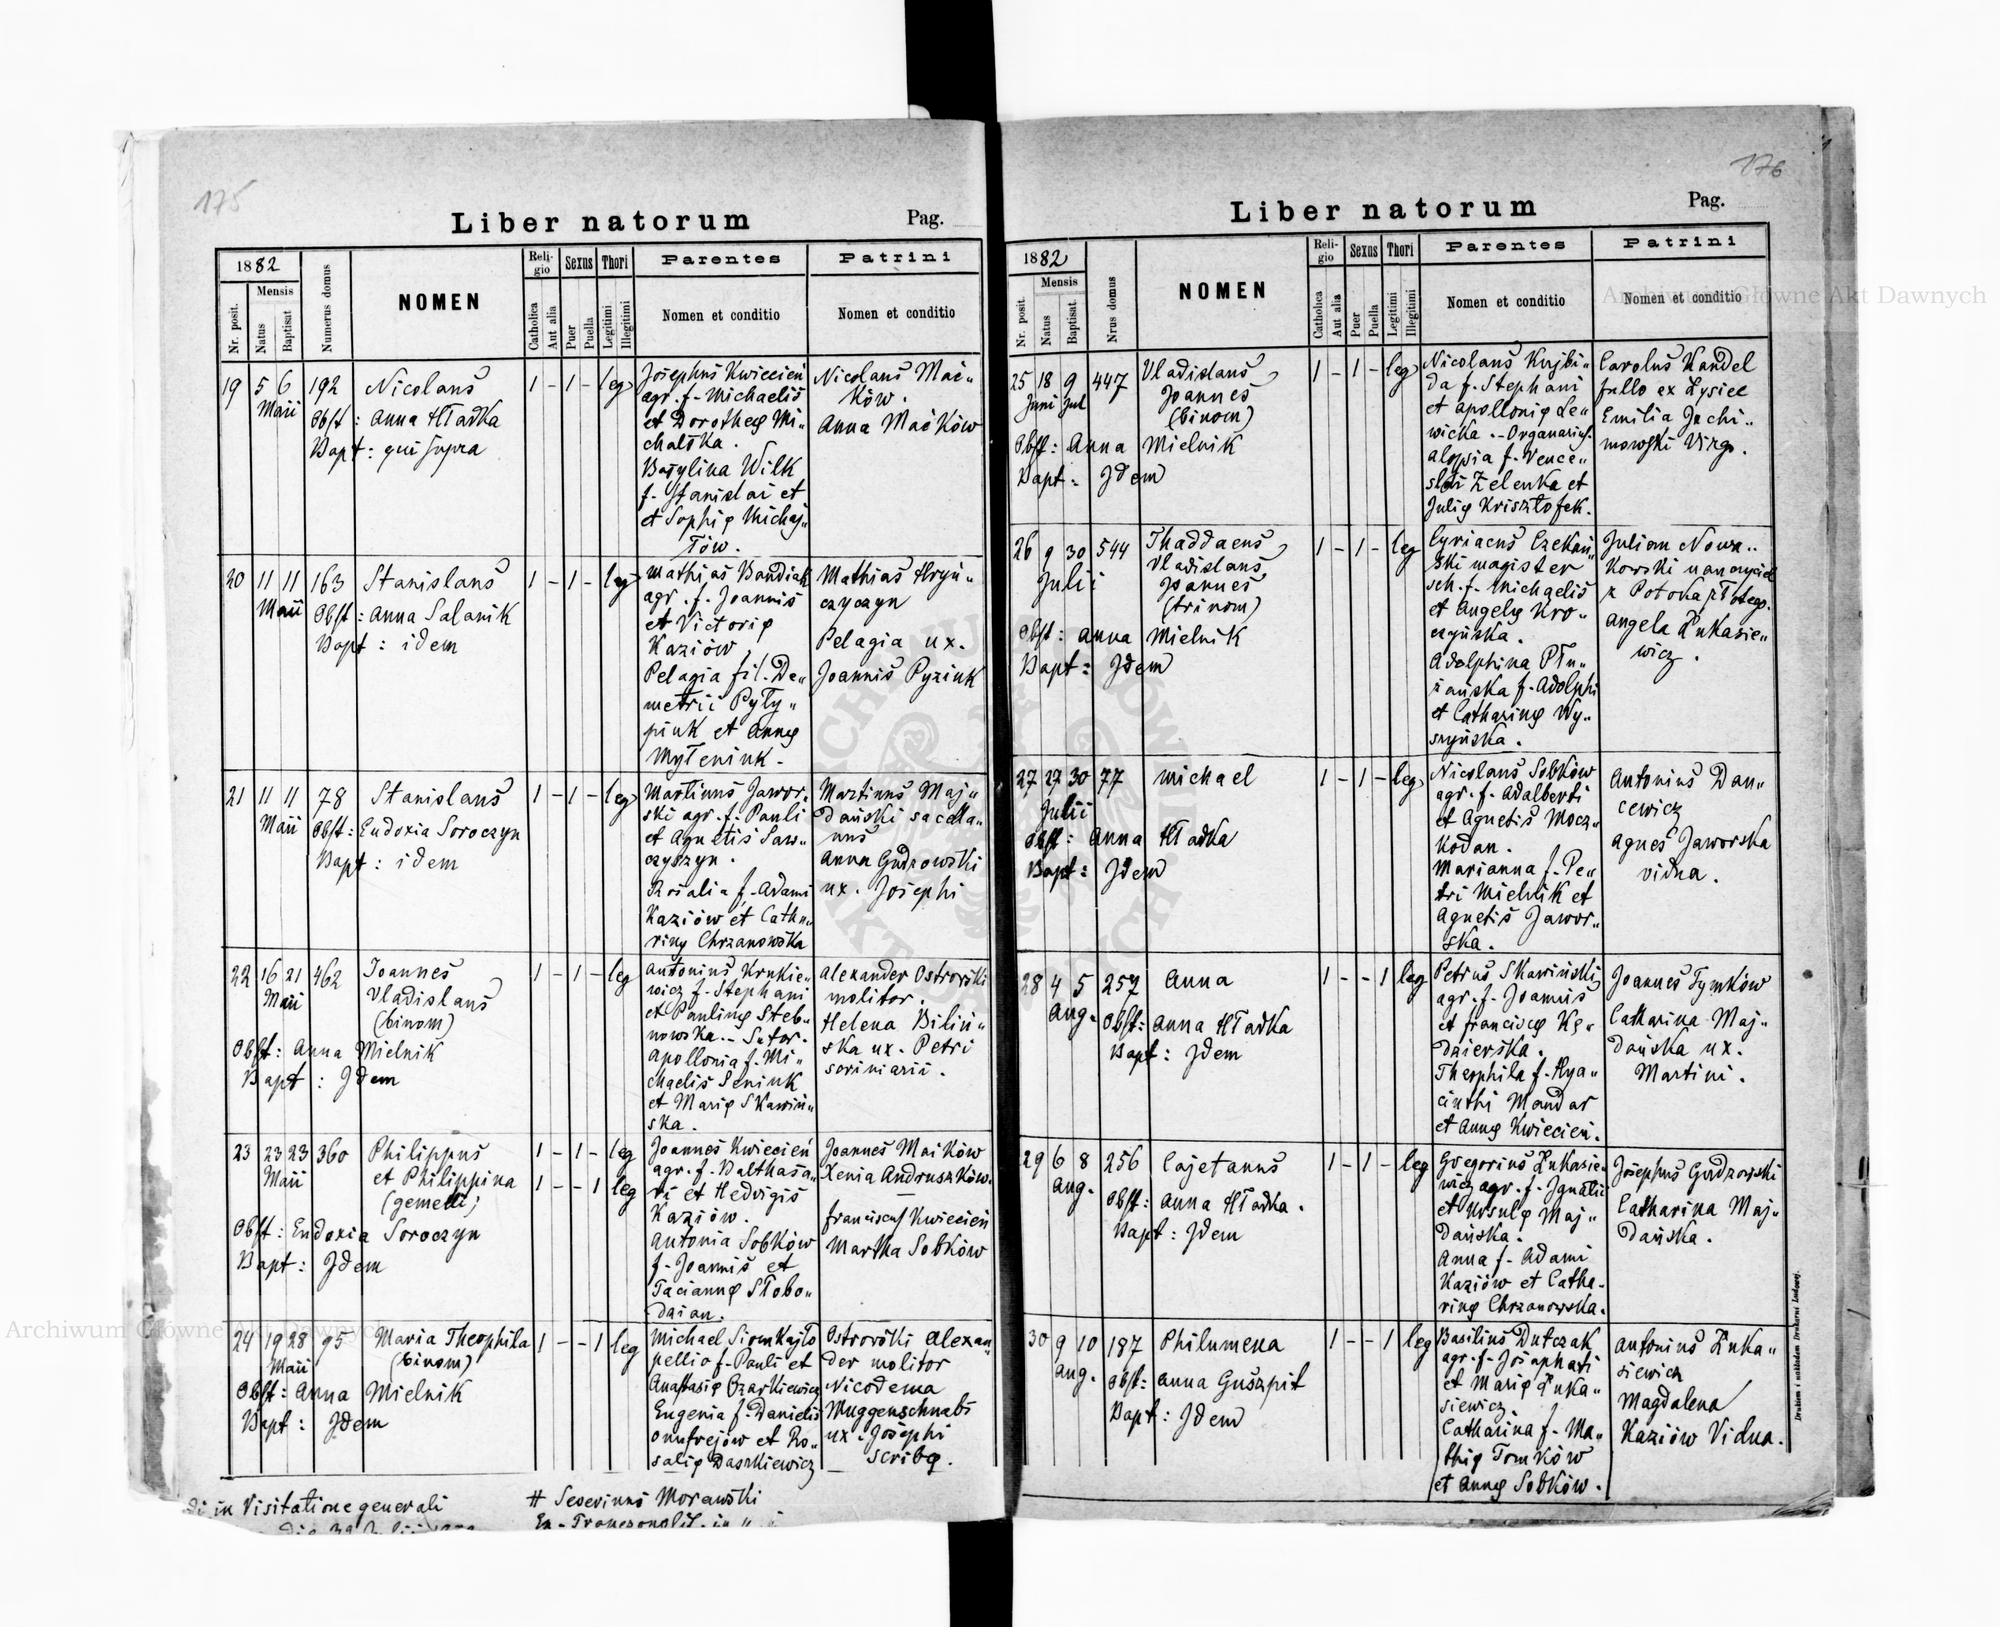 175
Liber natorum
Pag.
1882
Nr. posit.
Mensis
Natus
Baptisat
Numerus domus
NOMEN
Reli-
gio
Catholica
Aut alia
Sexus
Puer
Puella
Thori
Legitimi
Illegitimi
Parentes
Nomen et conditio
Patrini
Nomen et conditio
19 5 6 192 Nicolaus 1 - 1 - leg
Maii
Obst: Anna Hładka
Bapt: qui supra
Josephus Kwiecień
agr. f. Michaelis
et Dorotheę Mi„
chalska.
Bazylina Wilk
f. Stanislai et
et Sophię Michaj„
łów.
Nicolaus Mać„
ków.
Anna Maćków
20 11 11 163 Stanislaus 1 - 1 - leg
Maii
Obst: Anna Salanik
Bapt: idem
Mathias Bandiak
agr. f. Joannis
et Victorię
Kaziów
Pelagia fil. De„
metrii Pyły„
piuk et Annę
Myteniuk.
Mathias Hryń„
czyczyn
Pelagia ux.
Joannis Pyziuk
21 11 11 78 Stanislaus 1 - 1 - leg
Maii
Obst: Eudoxia Soroczyn
Bapt: idem
Martinus Jawor„
ski agr. f. Pauli
et Agnetis Saw„
czyszyn.
Rosalia f. Adami
Kaziów et Catha„
rinę Chrzanowska
Martinus Maj„
dański sacella„
nus
Anna Gudzowski
ux. Josephi
22 16 21 462 Joannes 1 - 1 - leg
Maii
Vladislaus
(binom)
Obst: Anna Mielnik
Bapt: Idem
Antonius Krukie„
wicz f. Stephani
et Paulinę Steb„
nowska. - Sutor.
Apollonia f. Mi„
chaelis Seniuk
et Marię Skawiń„
ska.
Alexander Ostrowski
molitor.
Helena Biliń„
ska ux. Petri
soriniarii.
23 23 23 360 Philippus 1 - 1 - leg
Maii
et Philippina 1 - - 1 leg
(gemelli)
Obst: Eudoxia Soroczyn
Bapt: Idem
Joannes Kwiecień
agr. f. Balthasa„
ri et Hedvigis
Kaziów.
Antonia Sobków
f. Joannis et
Taciannę Słobo„
daian.
Joannes Maików
Xenia Andruszków.
Franciscus Kwiecień
Martha Sobków
24 19 28 95 Maria Theophila 1 - - 1 leg
Maii
(binom)
Obst: Anna Mielnik
Bapt: Idem
Michael Siomkajło
pellio f. Pauli et
Anastasię Ozarkiewicz
Eugenia f. Danielis
Onufrejów et Ro„
salię Daszkiewicz
Ostrowski Alexan„
der molitor
Nicodema
Muggenschnabl
ux. Josephi
scribę.
in Visitatione generali
# Severinus Morawski
176
Liber natorum
Pag.
1882
Nr. posit.
Mensis
Natus
Baptisat
Nrus domus
NOMEN
Reli-
gio
Catholica
Aut alia
Sexus
Puer
Puella
Thori
Legitimi
Illegitimi
Parentes
Nomen et conditio
Patrini
Nomen et conditio
25 18 9 447 Vladislaus 1 - 1 - leg
Juni Jul
Joannes
(binom)
Obst: Anna Mielnik
Bapt: Idem
Nicolaus Kujbi„
da f. Stephani
et Apollonię Le„
wicka. - Organarius.
Aloysia f. Vence„
slai Zelenka et
Julię Krisztofek.
Carolus Kandel
fullo ex Lysiec
Emilia Jachi„
mowski Virgo.
26 9 30 544 Thaddaeus 1 - 1 - leg
Julii
Vladislaus
Joannes
(trinom)
Obst: Anna Mielnik
Bapt: Idem
Cyriacus Czekań„
ski magister
sch. f. Michaelis
et Angelę Kro„
czyńska.
Adolphina Płu„
żańska f. Adolphi
et Catharinę Wy„
szyńska.
Julian Nowa„
kowski nauczyciel
z Potoka złotego.
Angela Łukasie„
wicz.
27 27 30 77 Michael 1 - 1 - leg
Julii
Obst: Anna Hładka
Bapt: Idem
Nicolaus Sobków
agr. f. Adalberti
et Agnetis Mocz„
kodan.
Marianna f. Pe„
tri Mielnik et
Agnetis Jawor„
ska.
Antonius Dan„
cewicz
Agnes Jaworska
vidua.
28 4 5 257 Anna 1 - - 1 leg
Aug.
Obst: Anna Hładka
Bapt: Idem
Petrus Skawiński
agr. f. Joannis
et Franciscę Kę„
dzierska.
Theophila f. Hya„
cinthi Mandar
et Annę Kwiecień.
Joannes Tymków
Catharina Maj„
dańska ux.
Martini.
29 6 8 256 Cajetanus 1 - 1 - leg
Aug.
Obst: Anna Hładka.
Bapt: Idem
Gregorius Łukasie„
wicz agr. f. Ignatii
et Ursulę Maj„
dańska.
Anna f. Adami
Kaziów et Catha„
rinę Chrzanowska.
Josephus Gudzowski
Catharina Maj„
dańska.
30 9 10 187 Philumena 1 - - 1 leg
Aug.
Obst: Anna Guszpit
Bapt: Idem
Basilius Dutczak
agr. f. Josaphati
et Marię Łuka„
siewicz.
Catharina f. Ma„
thię Tomków
et Annę Sobków.
Antonius Łuka„
siewicz
Magdalena
Kaziów Vidua.
Drukiem i nakładem Drukarni Ludowej.
Archiwum Główne Akt Dawnych
Archiwum Główne Akt Dawnych